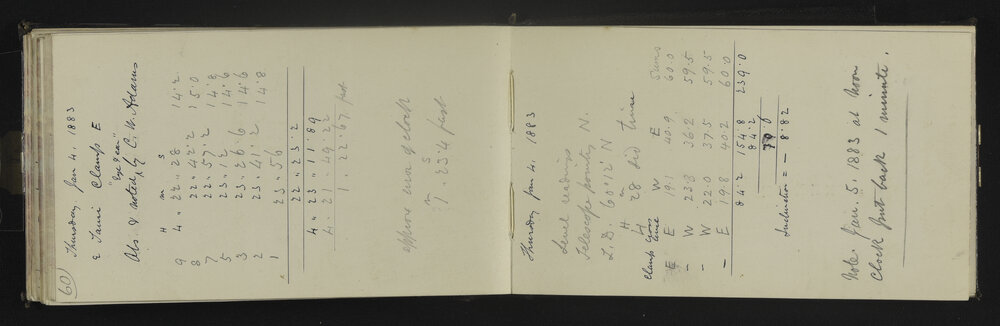 60
Thursday Jan 4. 1883
ε Tauri Clamp E
"Eye & ear"
Obs. & noted by C. W. Adams
H m s
9 4 " 22 " 28 14.2
8 22 " 42.2 15.0
7 22 " 57.2 14.8
5 23 " 12 14.6
3 23 " 26.6 14.6
2 23 . 41.2 14.8
1 23 " 56
22 " 23.2
4 " 23 " 11.89
4 . 21 . 49.22
1 . 22.67 fast
approx error of clock
m s
1 . 23.4 fast
Thursday Jan 4. 1883
Level readings
Telescope points N.
Z.D 60°12' N
H m
4 28 sid time
Clamp level W E Sums
E E 19.1 40.9 60.0
- W 23.3 36.2 59.5
- W 22.0 37.5 59.5
- E 19.8 40.2 60.0
84.2 154.8 239.0
84.2
70.6
Inclination = - 8.82
Note. Jan. 5. 1883 at Noon
Clock put back 1 minute.